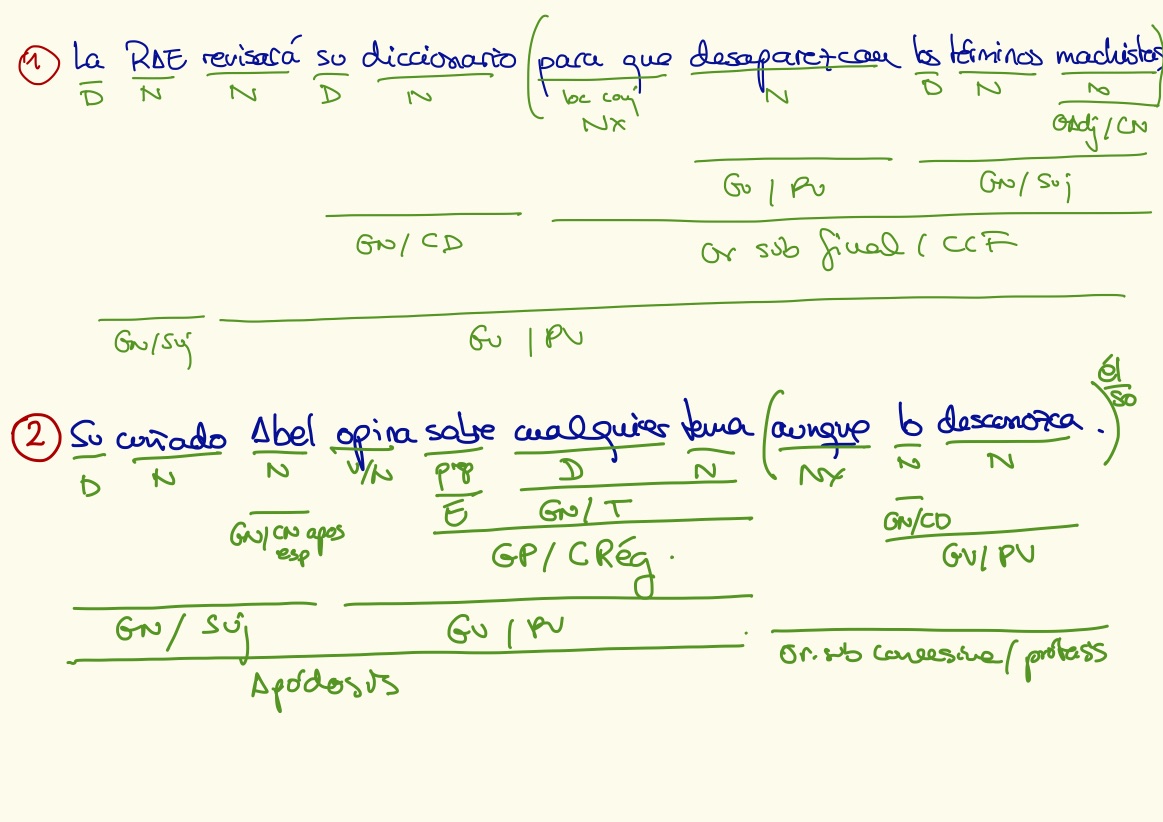 1 La RAE revisará su diccionario (para que desaparezcan los términos machistas)
D N N D N loc conj N D N N
NX GAdj/CN
GV / PV GN/Suj
GN/CD Or sub final / CCF
GN/Suj GV / PV
él
so
2 Su cuñado Abel opina sobre cualquier tema (aunque lo desconozca.)
D N N V/N prep D N NX N N
GN/CN apos E GN/T GN/CD
esp GP/CRég. GV/PV
GN/Suj GV / PV Or. sub concesiva/prótasis
Apódosis